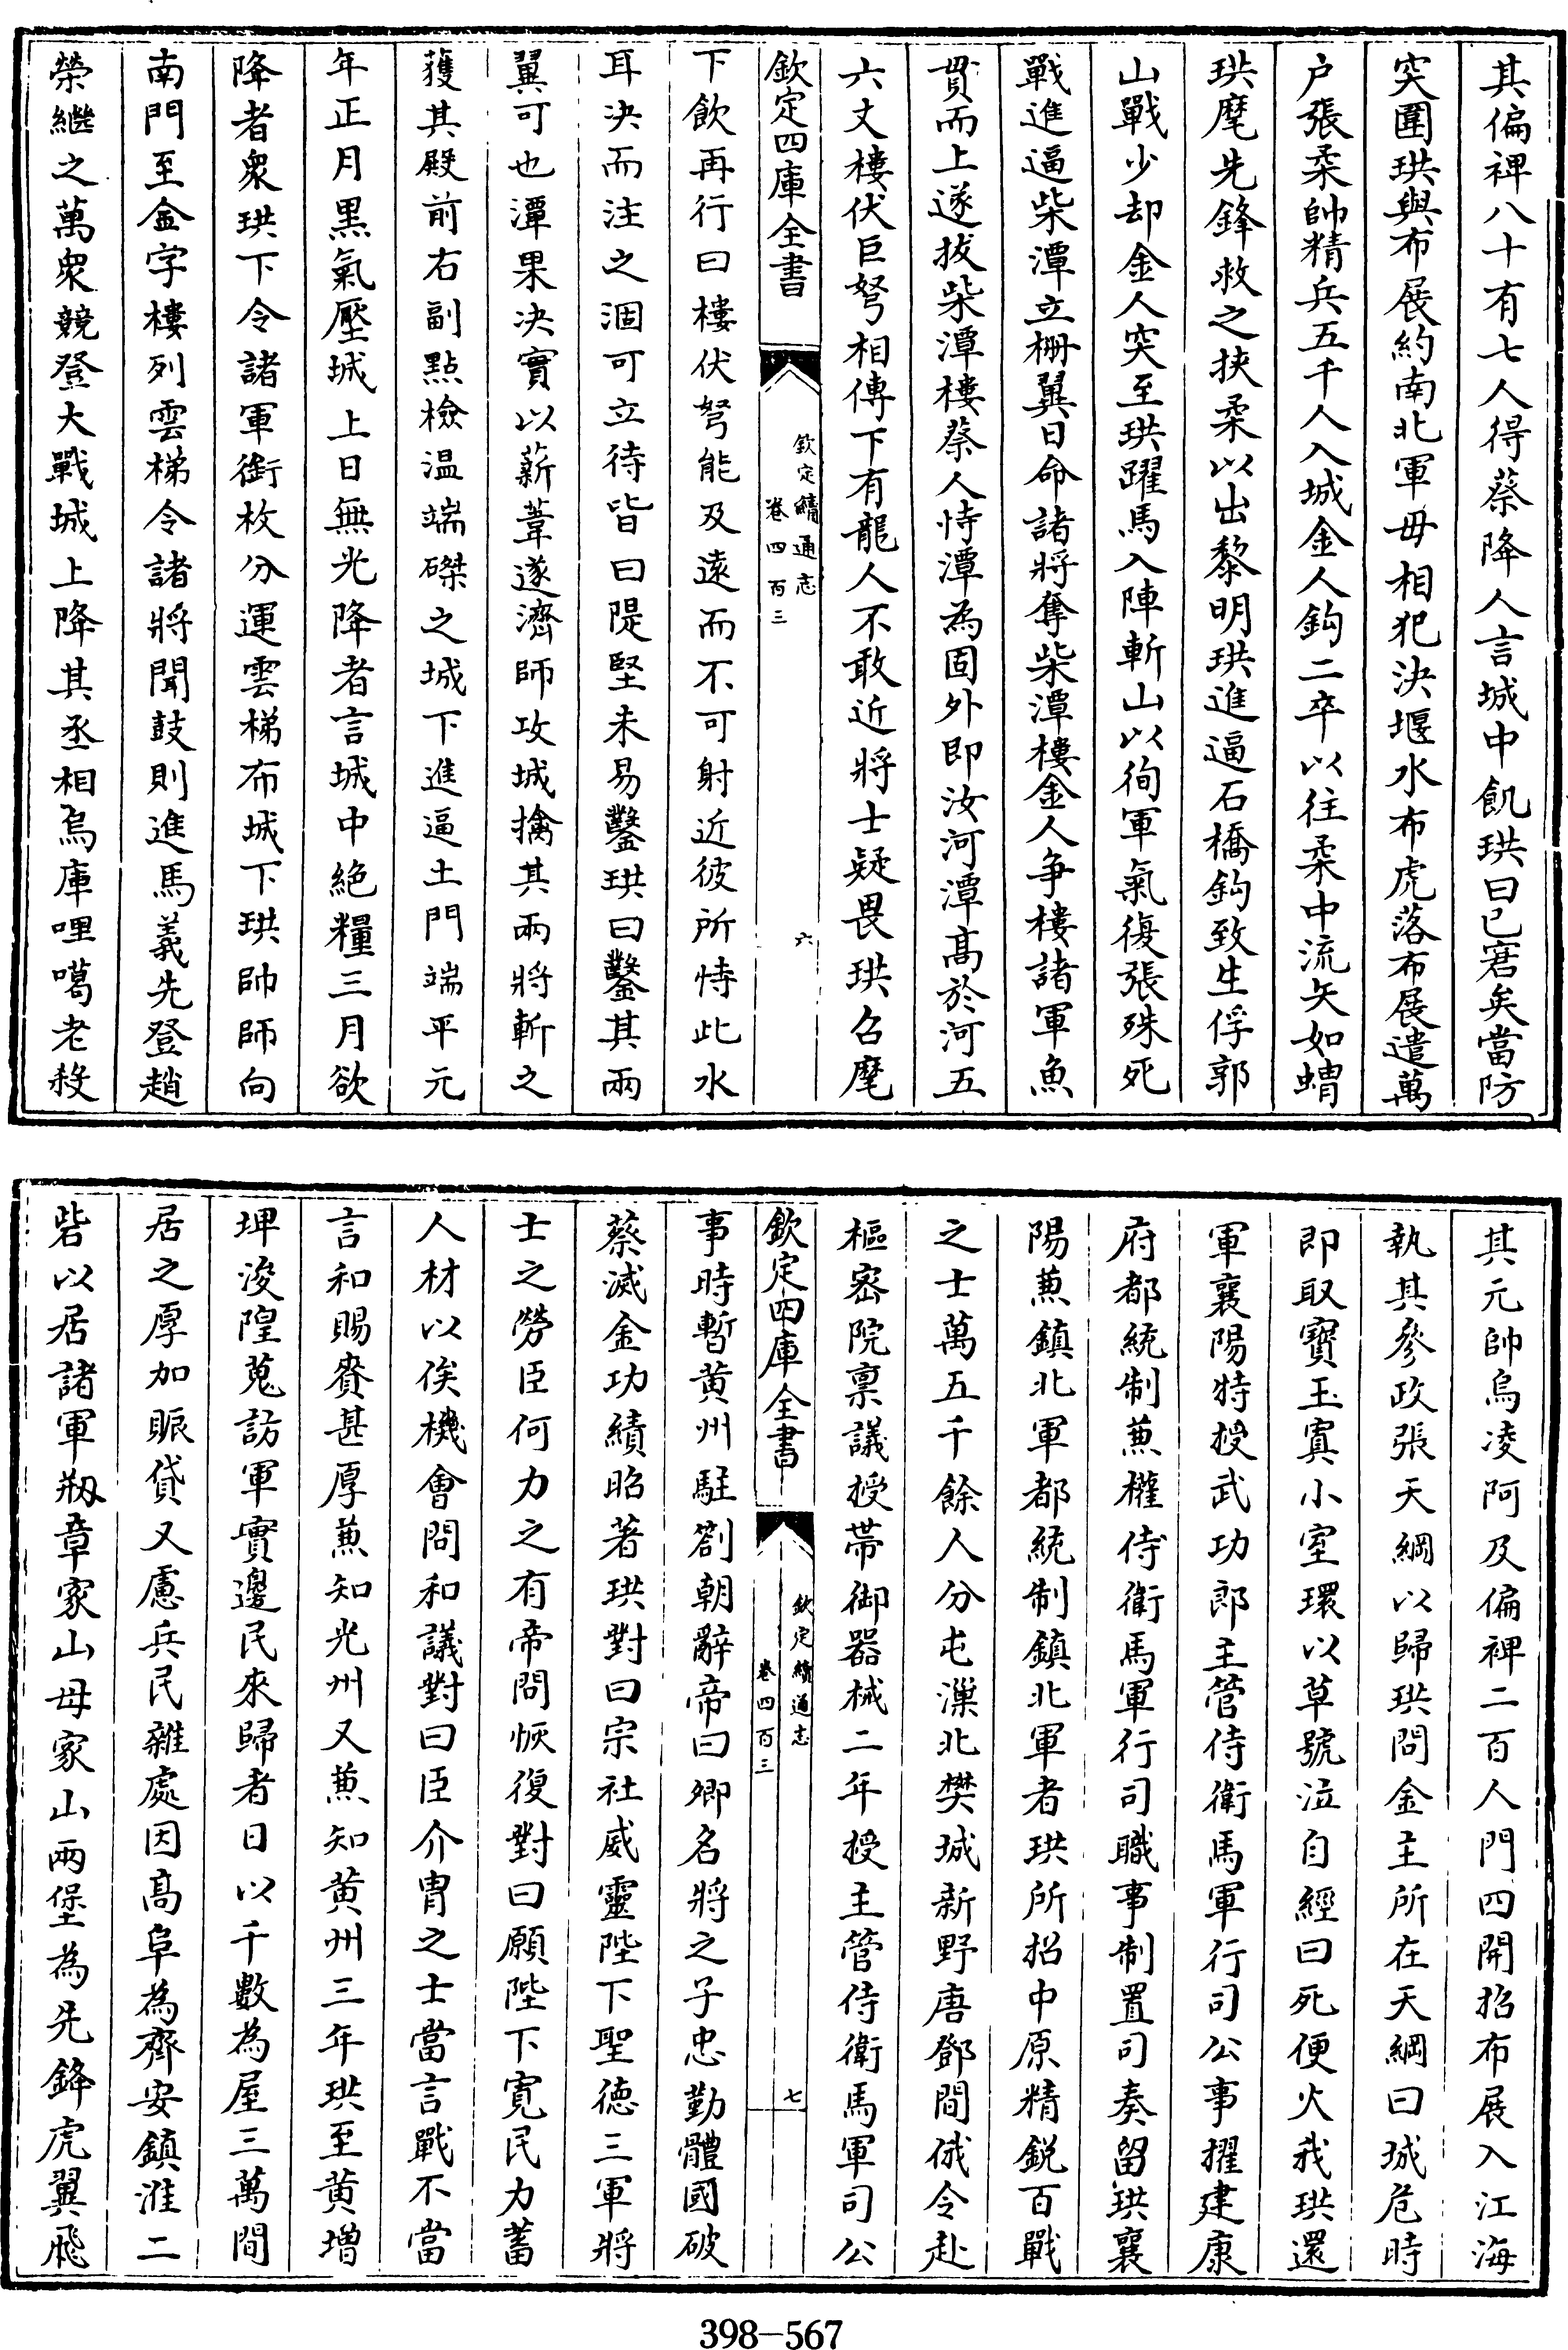 其偏裨八十有七人得蔡降人言城中飢珙曰已窘矣當防
突圍珙與布展約南北軍毋相犯決堰水布虎落布展遣萬
户張柔帥精兵五千人入城金人鈎二卒以往柔中流矢如蝟
珙麾先鋒救之挾柔以出黎明珙進逼石橋鈎致生俘郭
山戰少却金人突至珙躍馬入陣斬山以徇軍氣復張殊死
戰進逼柴潭立栅翼日命諸將奪柴潭樓金人争樓諸軍魚
貫而上遂拔柴潭樓蔡人恃潭為固外即汝河潭髙於河五
六丈樓伏巨弩相傳下有龍人不敢近將士疑畏珙召麾
欽定四庫全書
欽定續通志
卷四百三
六
下飲再行曰樓伏弩能及遠而不可射近彼所恃此水
耳決而注之涸可立待皆曰隄堅未易鑿珙曰鑿其兩
翼可也潭果決實以薪葦遂濟師攻城擒其兩將斬之
獲其殿前右副點檢温端磔之城下進逼土門端平元
年正月黑氣壓城上日無光降者言城中絶糧三月欲
降者衆珙下令諸軍銜枚分運雲梯布城下珙帥師向
南門至金字樓列雲梯令諸將聞鼓則進馬義先登趙
榮繼之萬衆競登大戰城上降其丞相烏庫哩噶老殺
其元帥烏凌阿及偏裨二百人門四開招布展入江海
執其參政張天綱以歸珙問金主所在天綱曰城危時
即取寶玉寘小室環以草號泣自經曰死便火我珙還
軍襄陽特授武功郎主管侍衛馬軍行司公事擢建康
府都統制兼權侍衛馬軍行司職事制置司奏留珙襄
陽兼鎮北軍都統制鎮北軍者珙所招中原精鋭百戰
之士萬五千餘人分屯漅北樊城新野唐鄧間俄令赴
樞密院禀議授帶御器械二年授主管侍衛馬軍司公
欽定四庫全書
欽定續通志
卷四百三
七
事時暫黄州駐劄朝辭帝曰卿名將之子忠勤體國破
蔡滅金功績昭著珙對曰宗社威靈陛下聖德三軍將
士之勞臣何力之有帝問恢復對曰願陛下寛民力蓄
人材以俟機會問和議對曰臣介胄之士當言戰不當
言和賜賚甚厚兼知光州又兼知黄州三年珙至黄增
埤浚隍蒐訪軍實邊民來歸者日以千數為屋三萬間
居之厚加賑貸又慮兵民雜處因髙阜為齊安鎮淮二
砦以居諸軍剏章家山毋家山兩堡為先鋒虎翼飛
398-567